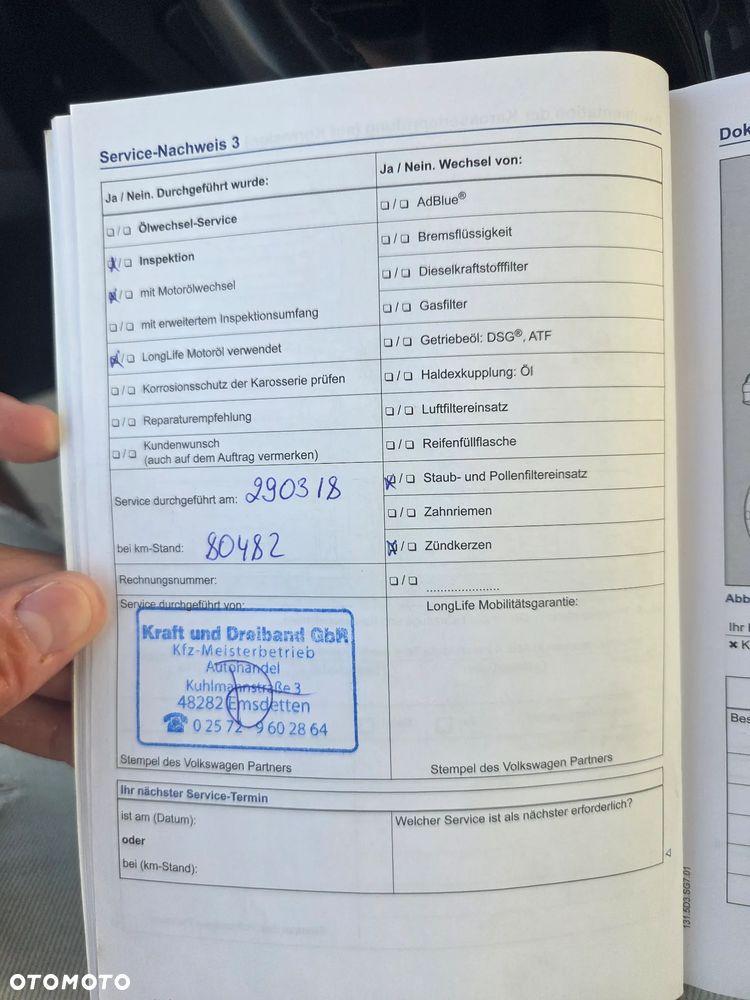 Service-Nachweis 3
Ja / Nein. Durchgeführt wurde:
❏ / ❏ Ölwechsel-Service
❏ / ❏ Inspektion
❏ / ❏ mit Motorölwechsel
❏ / ❏ mit erweitertem Inspektionsumfang
❏ / ❏ LongLife Motoröl verwendet
❏ / ❏ Korrosionsschutz der Karosserie prüfen
❏ / ❏ Reparaturempfehlung
❏ / ❏ Kundenwunsch
(auch auf dem Auftrag vermerken)
Service durchgeführt am: 290318
bei km-Stand: 80482
Rechnungsnummer:
Service durchgeführt von:
Kraft und Dreiband GbR
Kfz-Meisterbetrieb
Autohandel
Kuhlmannstraße 3
48282 Emsdetten
☎ 0 25 72 - 9 60 28 64
Stempel des Volkswagen Partners
Ja / Nein. Wechsel von:
❏ / ❏ AdBlue®
❏ / ❏ Bremsflüssigkeit
❏ / ❏ Dieselkraftstofffilter
❏ / ❏ Gasfilter
❏ / ❏ Getriebeöl: DSG®, ATF
❏ / ❏ Haldexkupplung: Öl
❏ / ❏ Luftfiltereinsatz
❏ / ❏ Reifenfüllflasche
❏ / ❏ Staub- und Pollenfiltereinsatz
❏ / ❏ Zahnriemen
❏ / ❏ Zündkerzen
❏ / ❏ ......................
LongLife Mobilitätsgarantie:
Stempel des Volkswagen Partners
Ihr nächster Service-Termin
ist am (Datum):
oder
bei (km-Stand):
Welcher Service ist als nächster erforderlich?
131.5D3.SG7.01
Dok
Abb
Ihr
✖ K
Bes
OTOMOTO